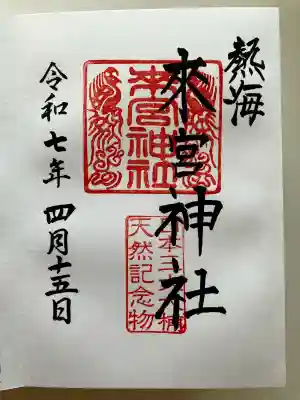 熱海
來宮神社
來宮神社
天然記念物
令和七年 四月十五日